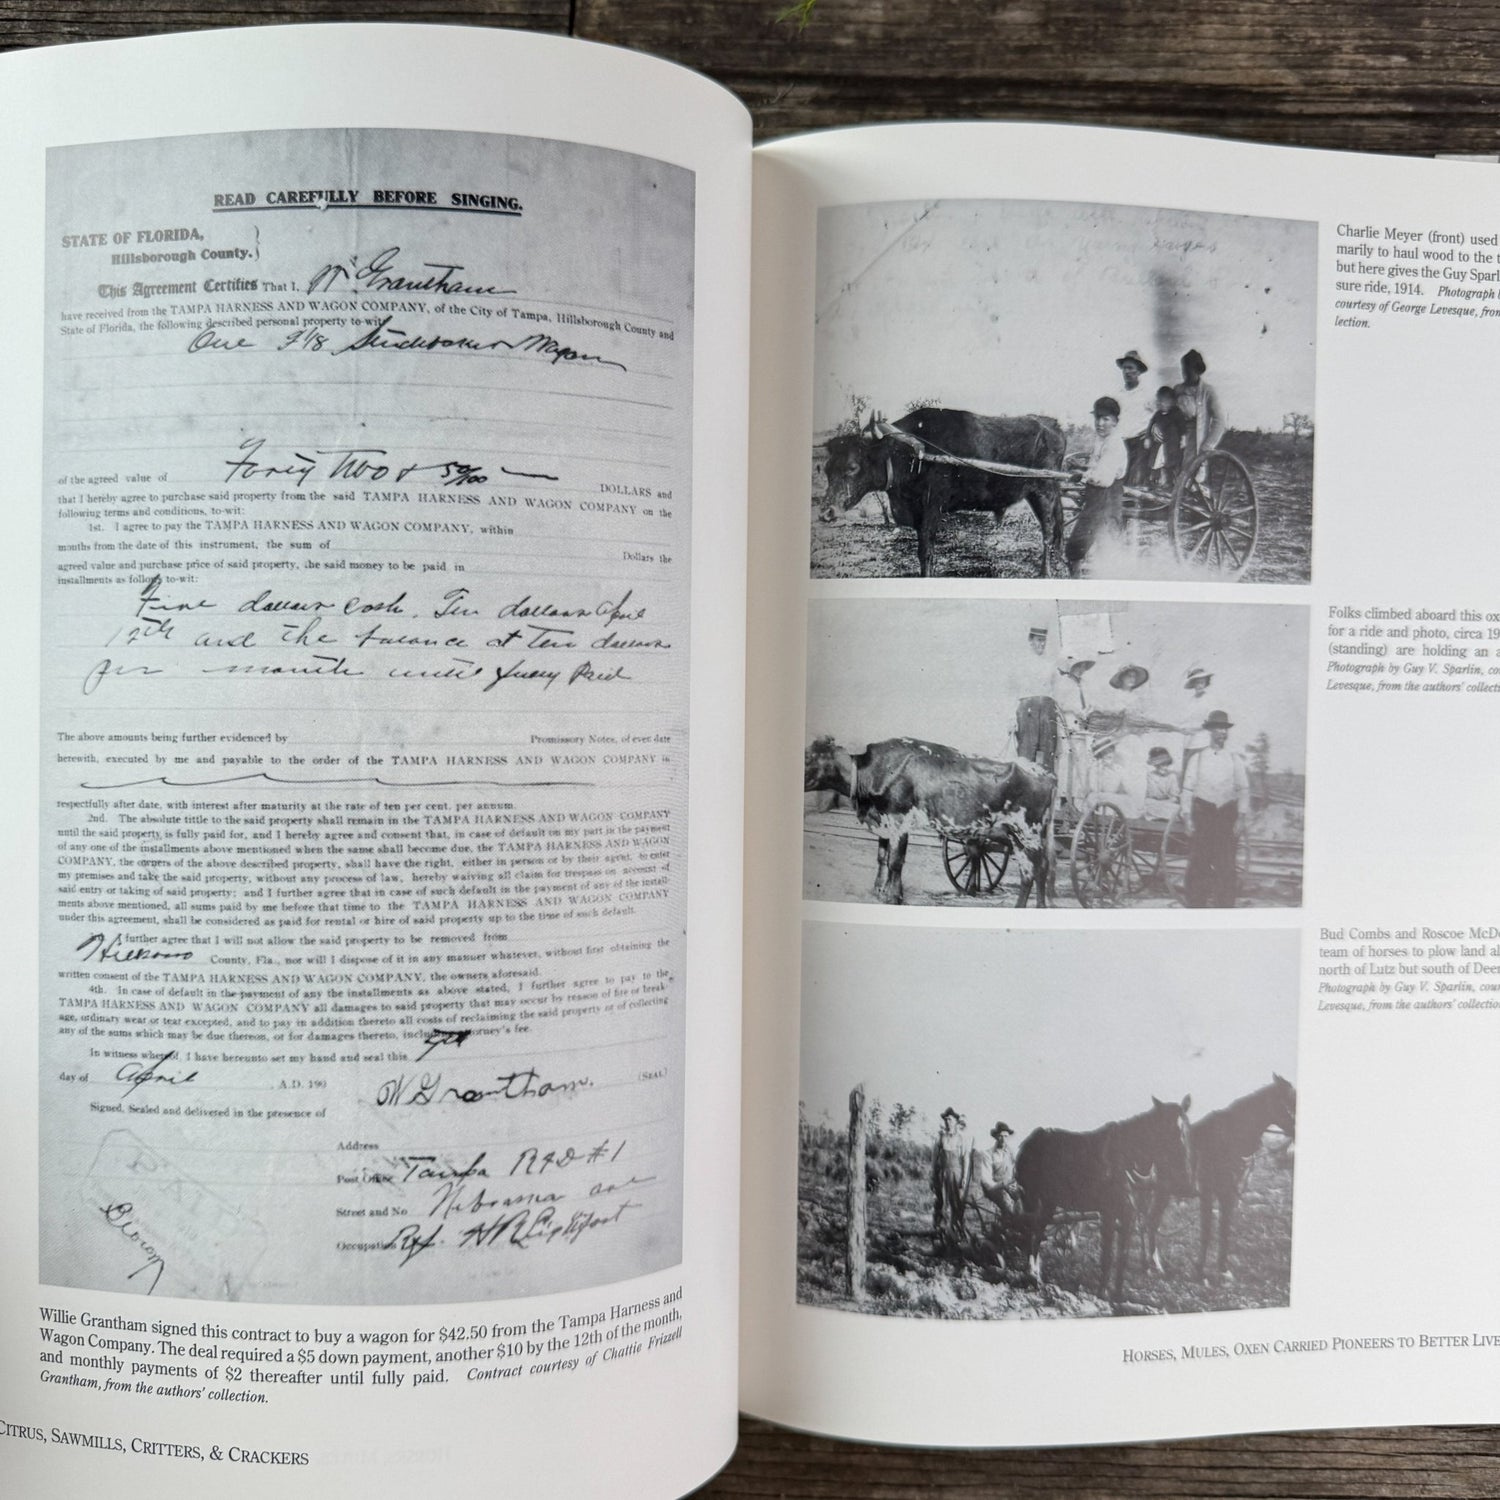 READ CAREFULLY BEFORE SINGING.
STATE OF FLORIDA,
Hillsborough County.
This Agreement Certifies That I, W Grantham
have received from the TAMPA HARNESS AND WAGON COMPANY, of the City of Tampa, Hillsborough County and
State of Florida, the following described personal property to-wit
One Studebaker Wagon
of the agreed value of Forty Two & 50/100 DOLLARS and
that I hereby agree to purchase said property from the said TAMPA HARNESS AND WAGON COMPANY on the
following terms and conditions, to-wit:
1st. I agree to pay the TAMPA HARNESS AND WAGON COMPANY, within
months from the date of this instrument, the sum of
Dollars the
agreed value and purchase price of said property, the said money to be paid in
installments as follows to-wit:
Five dollars Cash. Ten dollars April
12th and the balance at ten dollars
per month until fully Paid
The above amounts being further evidenced by Promissory Notes, of even date
herewith, executed by me and payable to the order of the TAMPA HARNESS AND WAGON COMPANY in
respectfully after date, with interest after maturity at the rate of ten per cent. per annum.
2nd. The absolute tittle to the said property shall remain in the TAMPA HARNESS AND WAGON COMPANY
until the said property, is fully paid for, and I hereby agree and consent that, in case of default on my part in the payment
of any one of the installments above mentioned when the same shall become due, the TAMPA HARNESS AND WAGON
COMPANY, the owners of the above described property, shall have the right, either in person or by their agent, to enter
my premises and take the said property, without any process of law, hereby waiving all claim for trespass on account of
said entry or taking of said property; and I further agree that in case of such default in the payment of any of the install-
ments above mentioned, all sums paid by me before that time to the TAMPA HARNESS AND WAGON COMPANY
under this agreement, shall be considered as paid for rental or hire of said property up to the time of such default.
I further agree that I will not allow the said property to be removed from
Hillsboro County, Fla., nor will I dispose of it in any manuer whatever, without first obtaining the
written consent of the TAMPA HARNESS AND WAGON COMPANY, the owners aforesaid.
4th. In case of default in the payment of any the installments as above stated, I further agree to pay to the
TAMPA HARNESS AND WAGON COMPANY all damages to said property that may occur by reason of fire or break-
age, ordinary wear or tear excepted, and to pay in addition thereto all costs of reclaiming the said property or of collecting
any of the sums which may be due thereon, or for damages thereto, including attorney's fee.
In witness whereof, I have hereunto set my hand and seal this
day of April A.D. 190
W Grantham. (SEAL)
Signed, Sealed and delivered in the presence of
Address
Post Office Tampa RFD #1
Street and No Nebraska ave
Occupation Ref.
Willie Grantham signed this contract to buy a wagon for $42.50 from the Tampa Harness and
Wagon Company. The deal required a $5 down payment, another $10 by the 12th of the month,
and monthly payments of $2 thereafter until fully paid. Contract courtesy of Chattie Frizzell
Grantham, from the authors' collection.
CITRUS, SAWMILLS, CRITTERS, & CRACKERS
Charlie Meyer (front) used
marily to haul wood to the t
but here gives the Guy Sparl
sure ride, 1914. Photograph
courtesy of George Levesque, from
lection.
Folks climbed aboard this ox
for a ride and photo, circa 19
(standing) are holding an a
Photograph by Guy V. Sparlin, co
Levesque, from the authors' collecti
Bud Combs and Roscoe McD
team of horses to plow land al
north of Lutz but south of Deer
Photograph by Guy V. Sparlin, cour
Levesque, from the authors' collection
HORSES, MULES, OXEN CARRIED PIONEERS TO BETTER LIVE